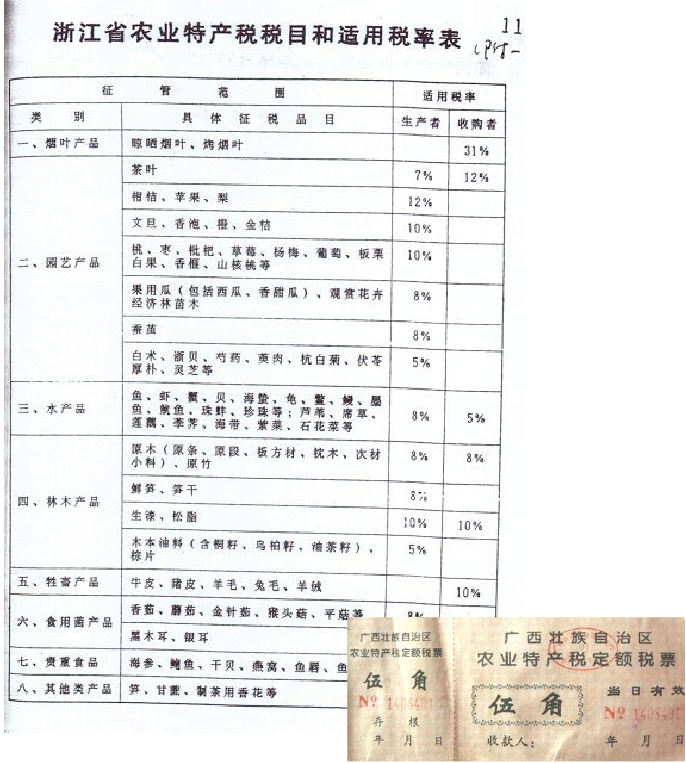 浙江省农业特产税税目和适用税率表
11
征 管 范 围
适用税率
类 别
具 体 征 税 品 目
生产者
收购者
一、烟叶产品
晾晒烟叶、烤烟叶
31%
二、园艺产品
茶叶
7%
12%
柑桔、苹果、梨
12%
文旦、香泡、橙、金桔
10%
桃、枣、枇杷、草莓、杨梅、葡萄、板栗
白果、香榧、山核桃等
10%
果用瓜（包括西瓜、香甜瓜）、观赏花卉
经济林苗木
8%
蚕茧
8%
白术、浙贝、芍药、萸肉、杭白菊、伏苓
厚朴、灵芝等
5%
三、水产品
鱼、虾、蟹、贝、海蜇、龟、鳖、鳗、墨
鱼、鱿鱼、珠蚌、珍珠等；芦苇、席草、
莲藕、荸荠、海带、紫菜、石花菜等
8%
5%
四、林木产品
原木（原条、原段、板方材、枕木、次材
小料）、原竹
8%
8%
鲜笋、笋干
8%
生漆、松脂
10%
10%
木本油料（含桐籽、乌桕籽、油茶籽）、
棕片
5%
五、牲畜产品
牛皮、猪皮、羊毛、兔毛、羊绒
10%
六、食用菌产品
香菇、蘑菇、金针菇、猴头菇、平菇等
8%
黑木耳、银耳
七、贵重食品
海参、鲍鱼、干贝、燕窝、鱼唇、鱼
八、其他类产品
笋、甘蔗、制茶用香花等
广西壮族自治区
农业特产税定额税票
伍 角
№ 1408401
存 根
年 月 日
广西壮族自治区
农业特产税定额税票
伍 角
当日有效
№ 1408401
收款人：
年 月 日